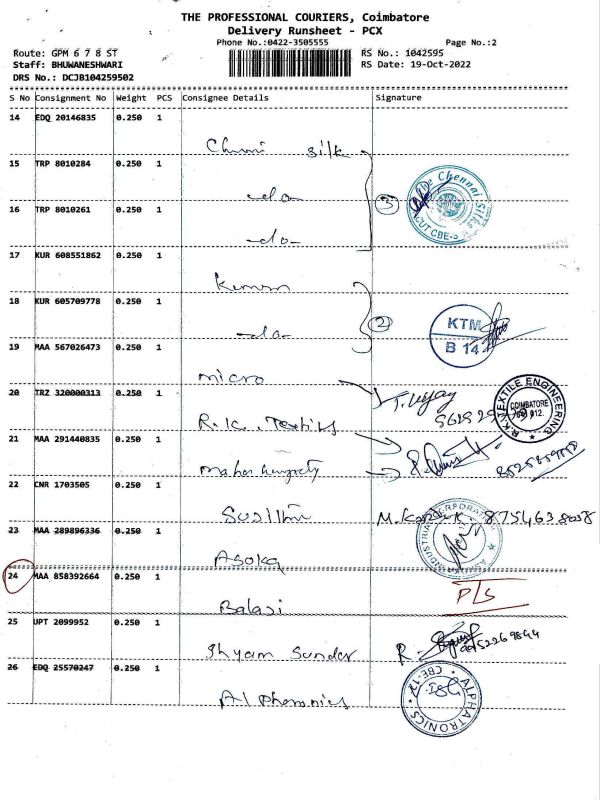 THE PROFESSIONAL COURIERS, Coimbatore
Delivery Runsheet - PCX
Phone No.:0422-3505555 Page No.:2
Route: GPM 6 7 8 ST RS No.: 1042595
Staff: BHUWANESHWARI RS Date: 19-Oct-2022
DRS No.: DCJB104259502
S No Consignment No Weight PCS Consignee Details Signature
14 EDQ 20146835 0.250 1
silk
15 TRP 8010284 0.250 1
-do-
The Chennai Silks
3
16 TRP 8010261 0.250 1
-do-
17 KUR 608551862 0.250 1
18 KUR 605709778 0.250 1
-do-
2
KTM
B 14
19 MAA 567026473 0.250 1
micro
T. Vijay
20 TRZ 320000313 0.250 1
R.K. Textiles
R.K. TEXTILE ENGINEERING
COIMBATORE
641 012.
21 MAA 291440835 0.250 1
22 CNR 1703505 0.250 1
8754638038
23 MAA 289896336 0.250 1
Asoka
24 MAA 858392664 0.250 1
Balaji
25 UPT 2099952 0.250 1
Shyam Sunder
R.
26 EDQ 25570247 0.250 1
ALPHATRONICS
CBE-12